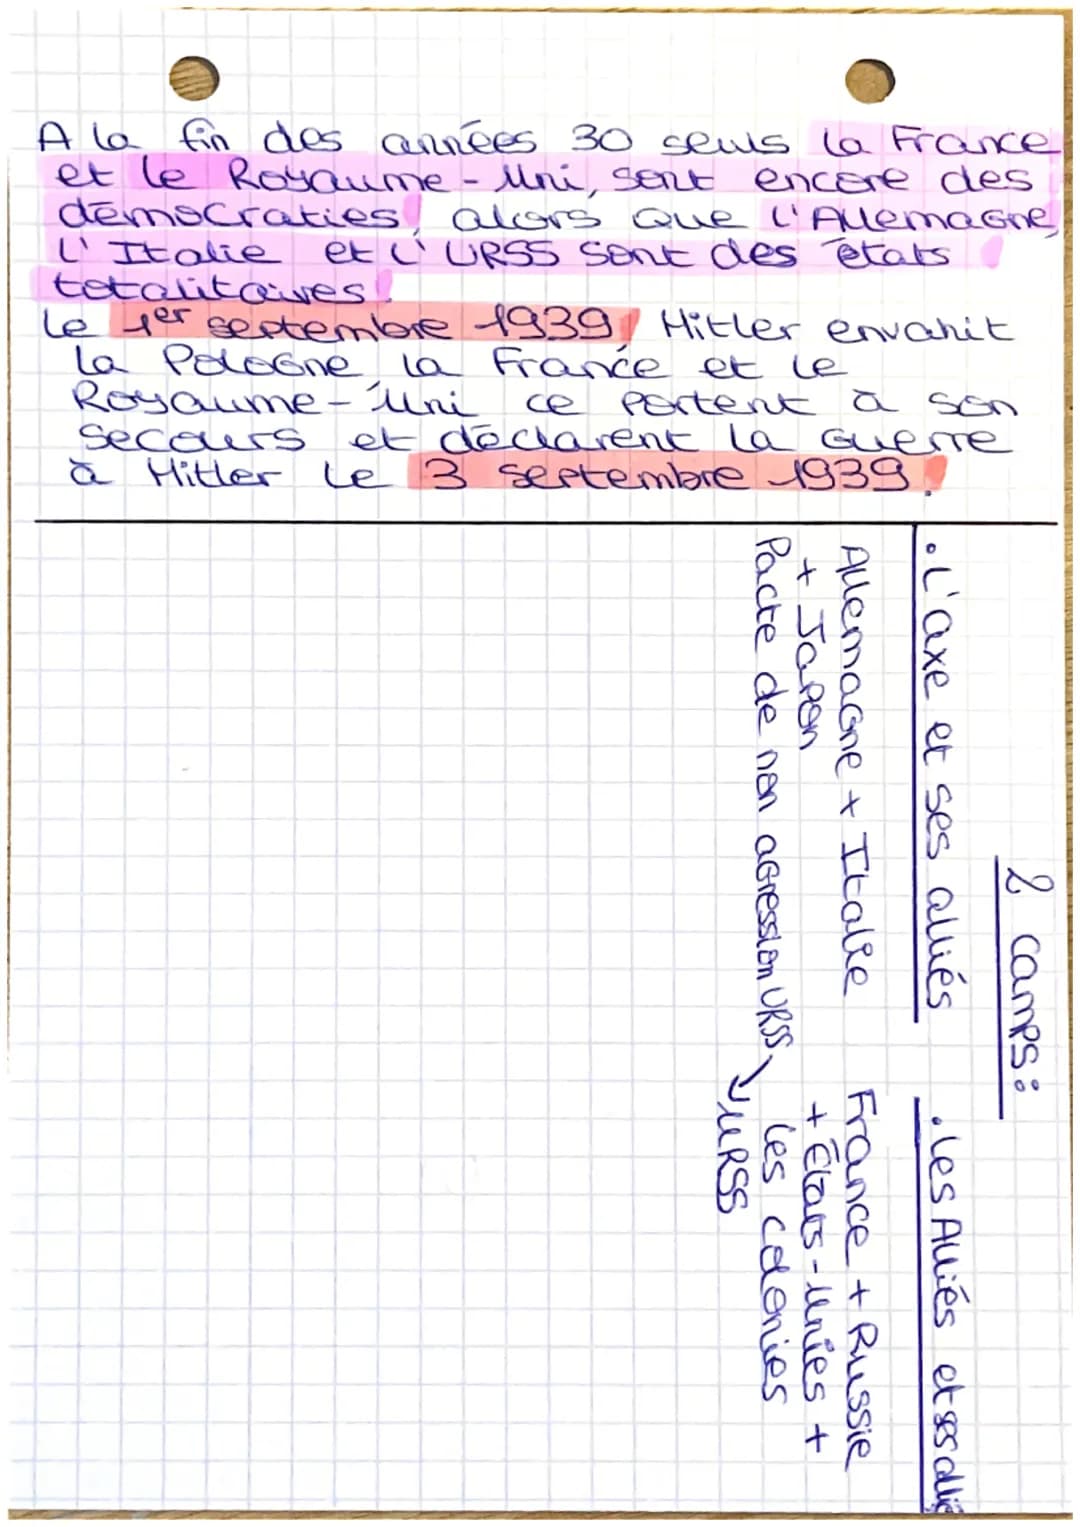 A la fin des années 30 seuls la France
et le Royaume-Uni, sont encore des
démocraties, alors que l'Allemagne,
l'Italie et l'URSS sont des états
totalitaires.
Le 1er septembre 1939, Hitler envahit
la Pologne la France et le
Royaume-Uni ce portent à son
secours et déclarent la guerre
à Hitler le 3 septembre 1939.
2 camps:
• L'axe et ses alliés
Allemagne + Italie
+ Japon
Pacte de non agression URSS
→ URSS
• Les Alliés et ses allié
France + Russie
+ États-Unies +
les colonies